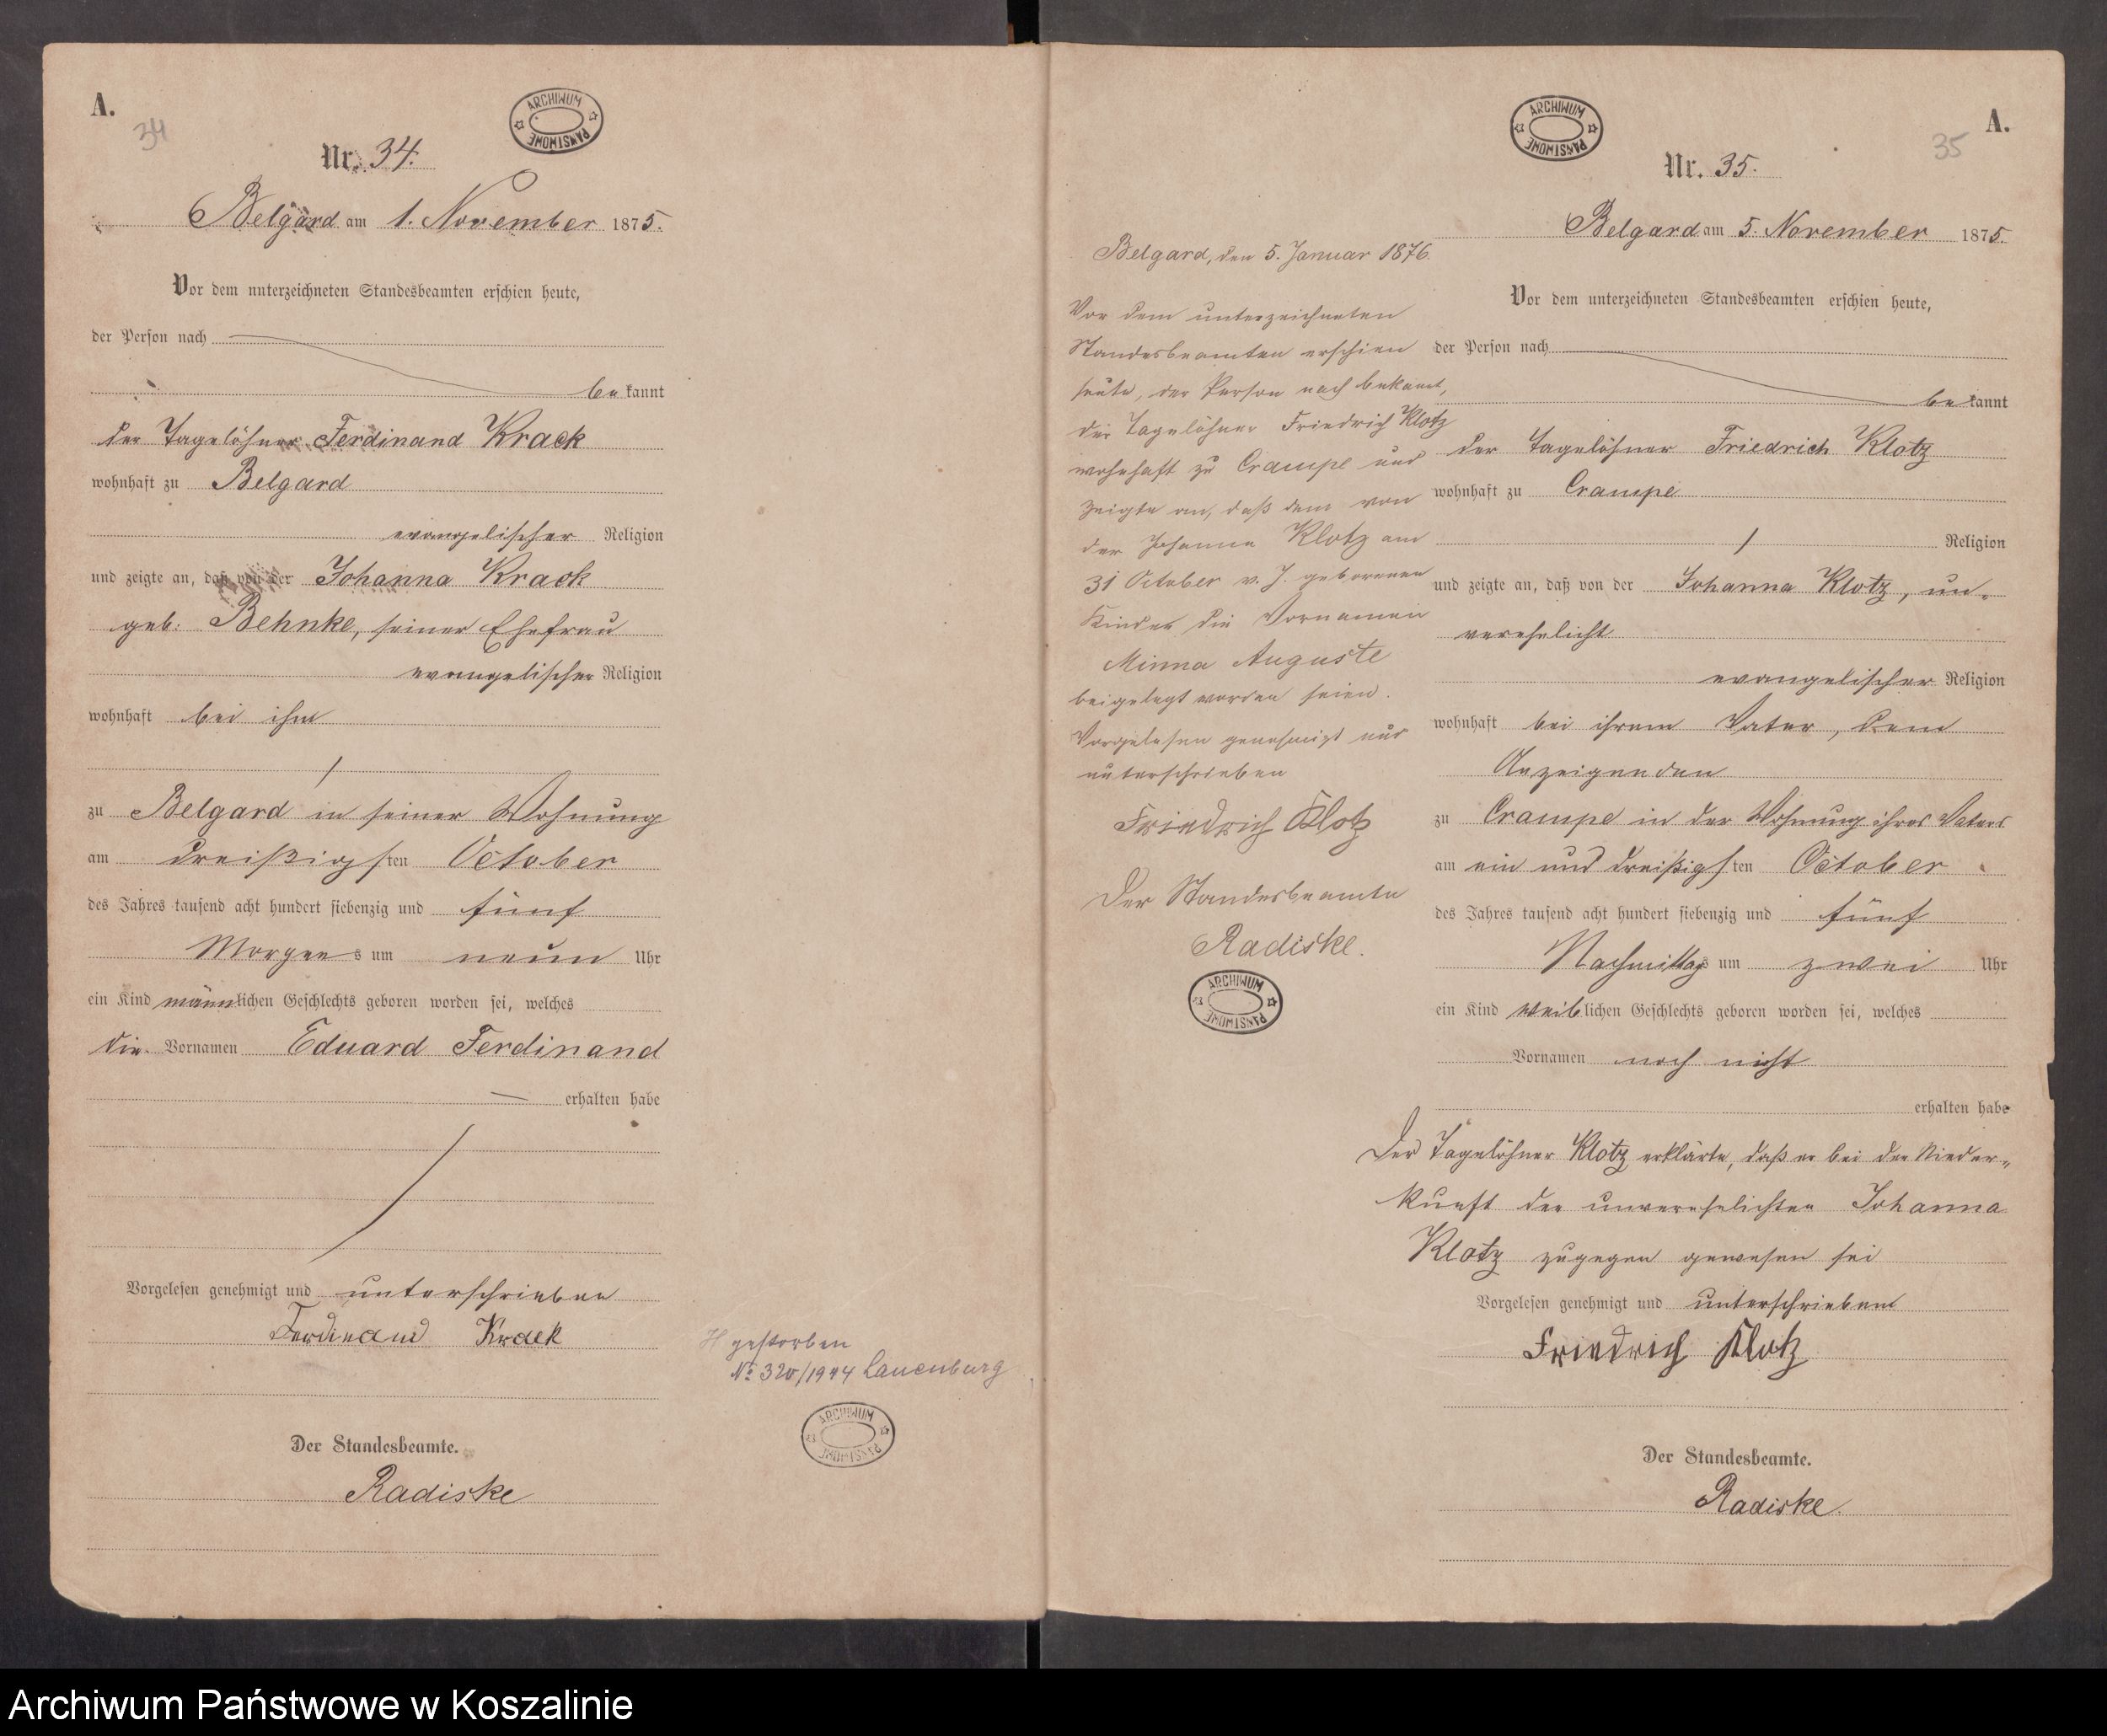 A.
34
ARCHIWUM PAŃSTWOWE
Nr. 34.
Belgard am 1. November 1875.
Vor dem unterzeichneten Standesbeamten erschien heute,
der Person nach
bekannt
der Tagelöhner Ferdinand Krack
wohnhaft zu Belgard
evangelischer Religion
und zeigte an, daß von der Johanna Krack
geb. Behnke, seiner Ehefrau
evangelischer Religion
wohnhaft bei ihm
zu Belgard in seiner Wohnung
am dreißigsten October
des Jahres tausend acht hundert siebenzig und fünf
Morgens um neun Uhr
ein Kind männlichen Geschlechts geboren worden sei, welches
die Vornamen Eduard Ferdinand
erhalten habe
Vorgelesen genehmigt und unterschrieben
Ferdinand Krack
Der Standesbeamte.
Radiske
gestorben
№ 320/1944 Lauenburg
ARCHIWUM PAŃSTWOWE
A.
35
ARCHIWUM PAŃSTWOWE
Nr. 35.
Belgard am 5. November 1875.
Vor dem unterzeichneten Standesbeamten erschien heute,
der Person nach
bekannt
der Tagelöhner Friedrich Klotz
wohnhaft zu Crampe
Religion
und zeigte an, daß von der Johanna Klotz, un-
verehelicht
evangelischer Religion
wohnhaft bei ihrem Vater, dem
Anzeigenden
zu Crampe in der Wohnung ihres Vaters
am ein und dreißigsten October
des Jahres tausend acht hundert siebenzig und fünf
Nachmittags um zwei Uhr
ein Kind weiblichen Geschlechts geboren worden sei, welches
Vornamen noch nicht
erhalten habe
Der Tagelöhner Klotz erklärte, daß er bei der Nieder-
kunft der unverehelichten Johanna
Klotz zugegen gewesen sei
Vorgelesen genehmigt und unterschrieben
Friedrich Klotz
Der Standesbeamte.
Radiske.
Belgard, den 5. Januar 1876.
Vor dem unterzeichneten
Standesbeamten erschien
heute, der Person nach bekannt,
der Tagelöhner Friedrich Klotz
wohnhaft zu Crampe und
zeigte an, daß dem von
der Johanna Klotz am
31 October v. J. geborenen
Kinder die Vornamen
Minna Auguste
beigelegt worden seien.
Vorgelesen genehmigt und
unterschrieben
Friedrich Klotz
Der Standesbeamte
Radiske.
ARCHIWUM PAŃSTWOWE
Archiwum Państwowe w Koszalinie